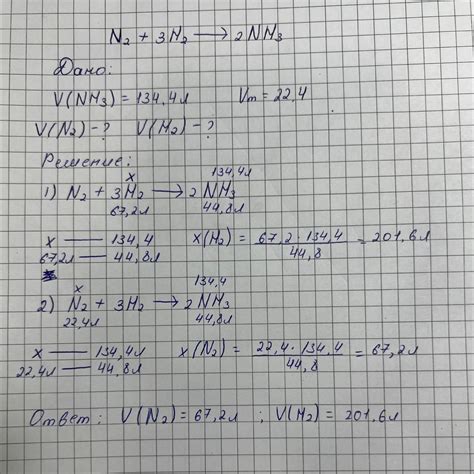 N₂ + 3H₂ ⟶ 2NH₃
Дано:
V(NH₃) = 134,4л Vm = 22,4
V(N₂) - ? V(H₂) - ?
Решение:
x 134,4л
1) N₂ + 3H₂ ⟶ 2NH₃
67,2л 44,8л
x — 134,4
67,2л — 44,8л
x(H₂) = 67,2 · 134,4 / 44,8 = 201,6л
x 134,4
2) N₂ + 3H₂ ⟶ 2NH₃
22,4л 44,8л
x — 134,4л
22,4л — 44,8л
x(N₂) = 22,4 · 134,4 / 44,8 = 67,2л
Ответ: V(N₂) = 67,2л ; V(H₂) = 201,6л